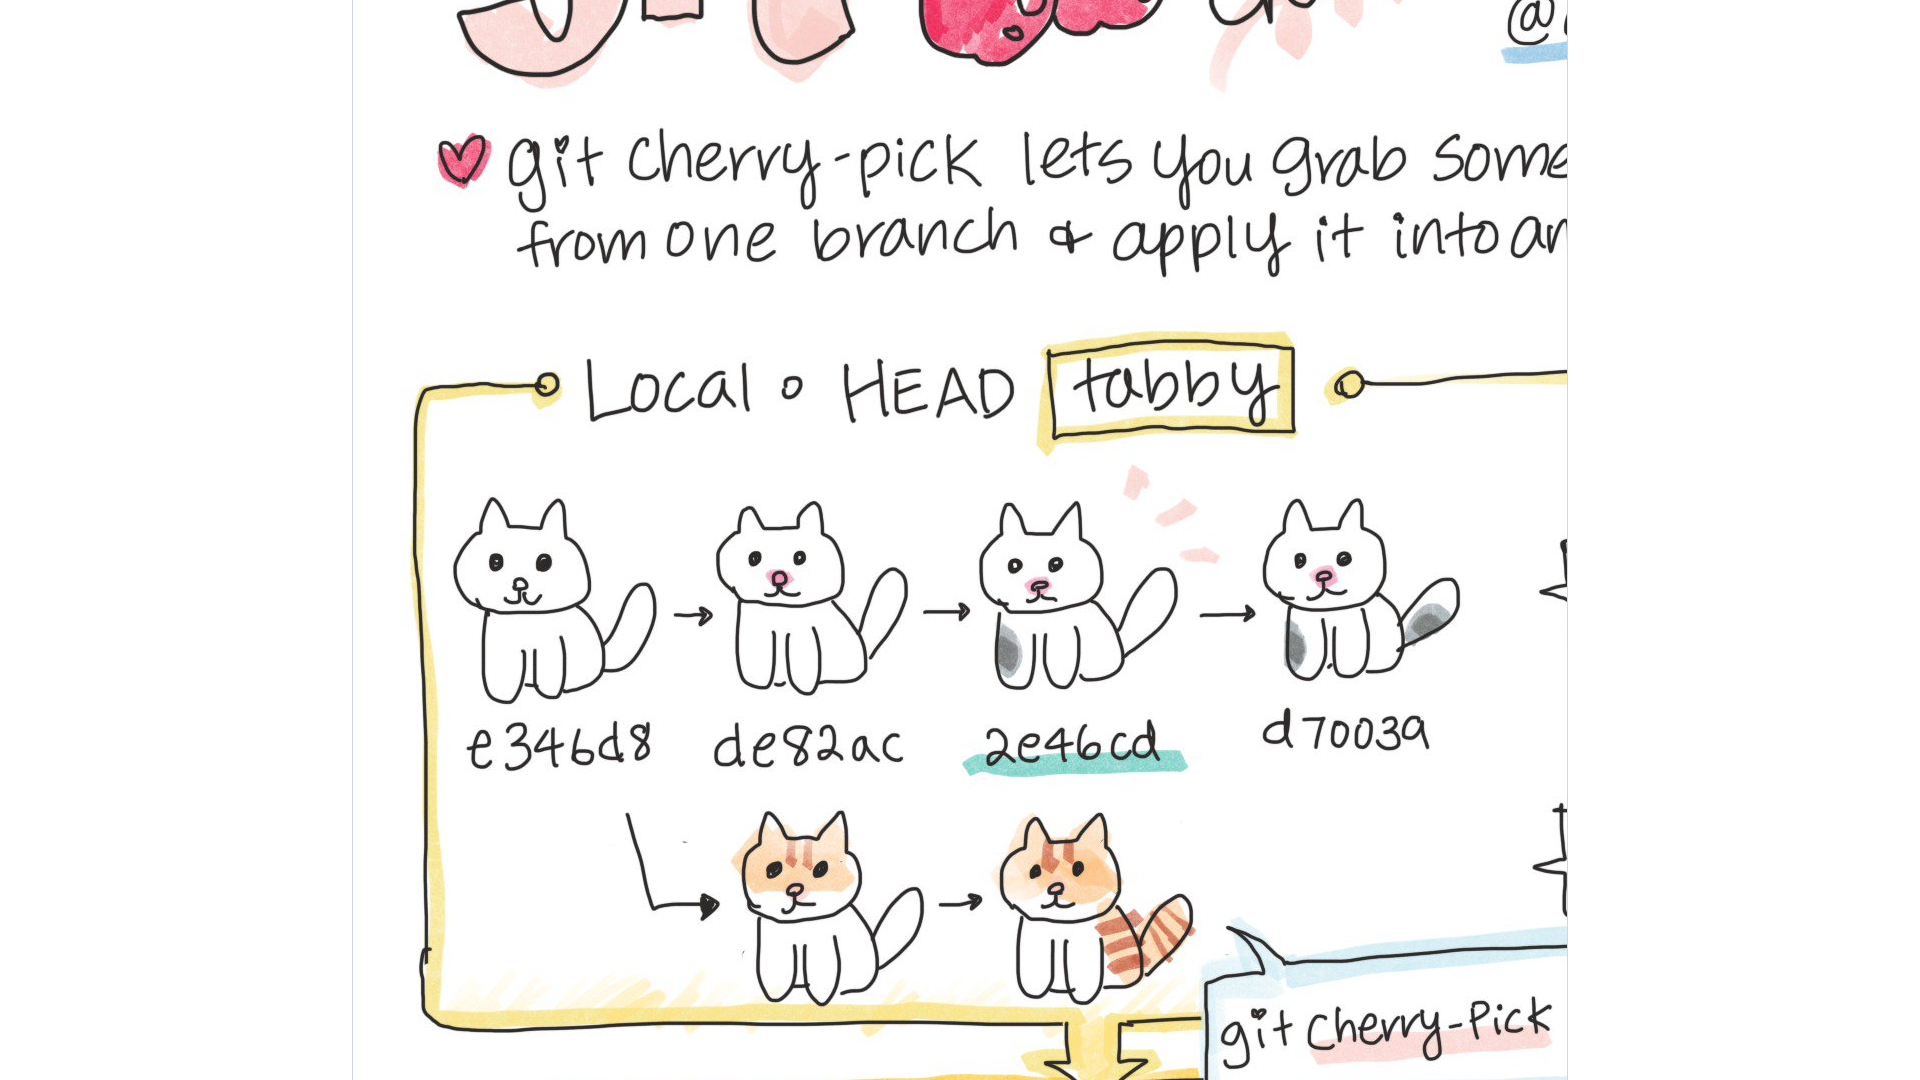 git cherry-pick lets you grab some
from one branch & apply it into an
Local • HEAD tabby
e346d8 de82ac 2e46cd d70039
git Cherry-Pick